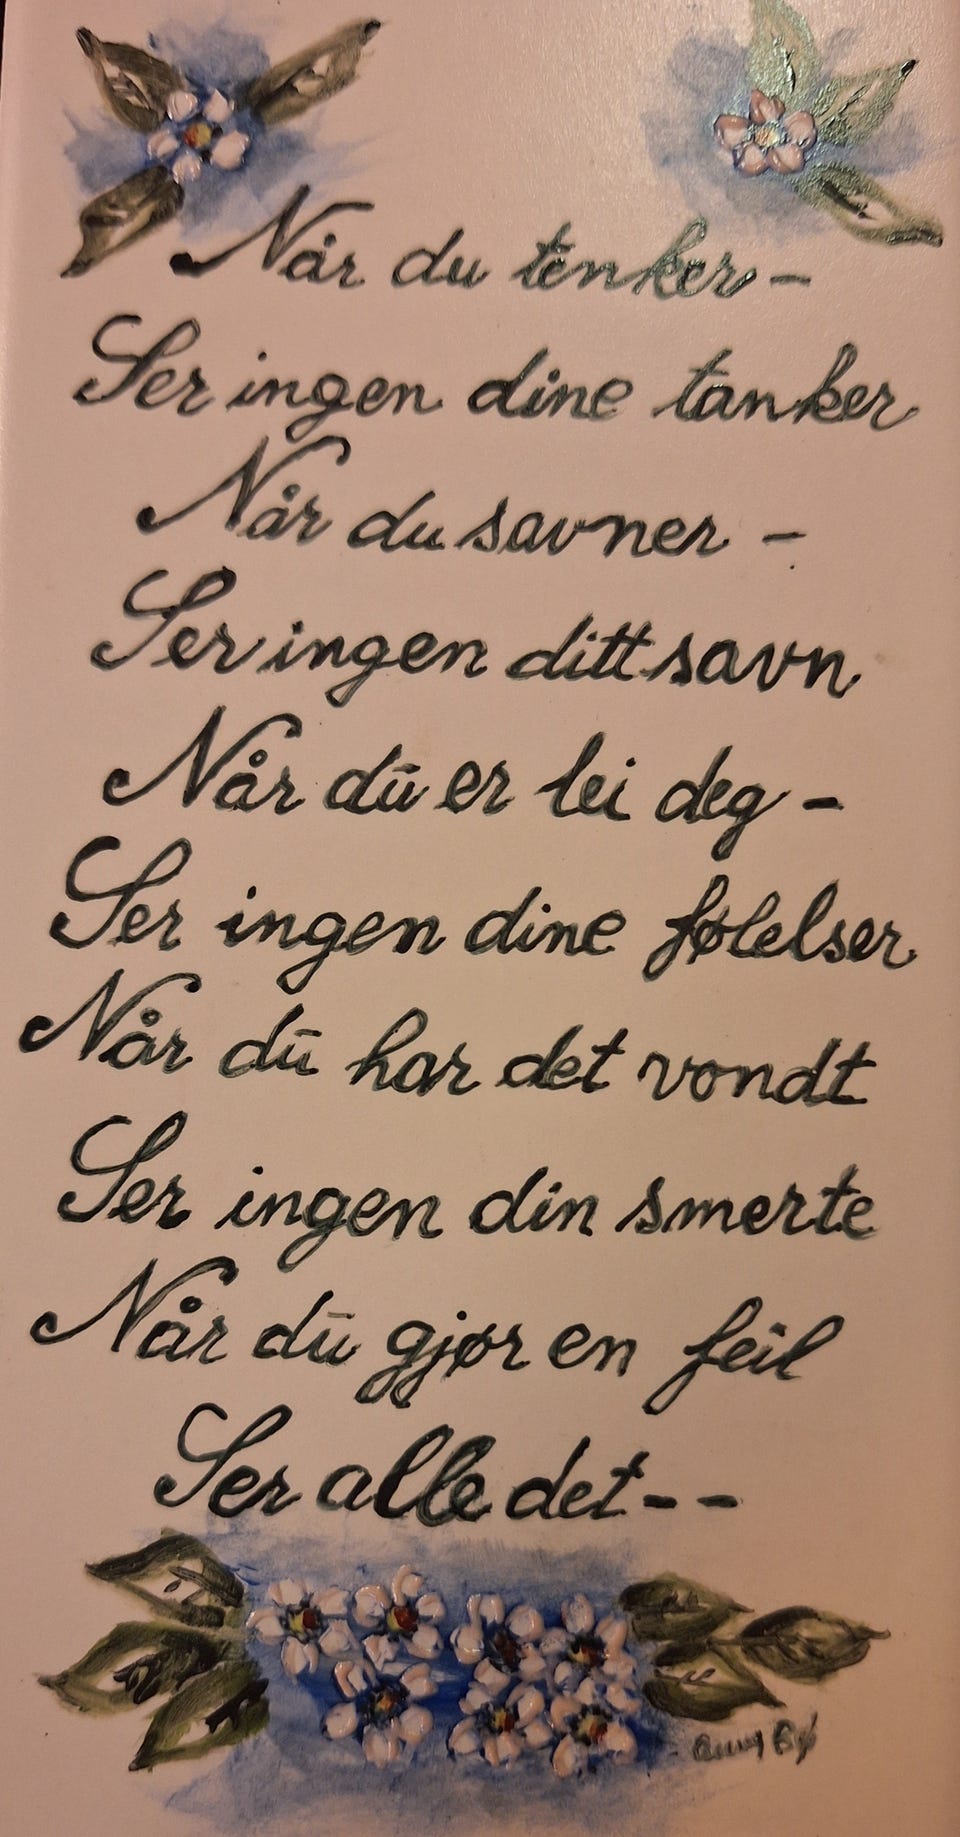 Når du tenker -
Ser ingen dine tanker
Når du savner -
Ser ingen ditt savn
Når dū er lei deg -
Ser ingen dine følelser
Når dū har det vondt
Ser ingen din smerte
Når dū gjør en feil
Ser alle det - -